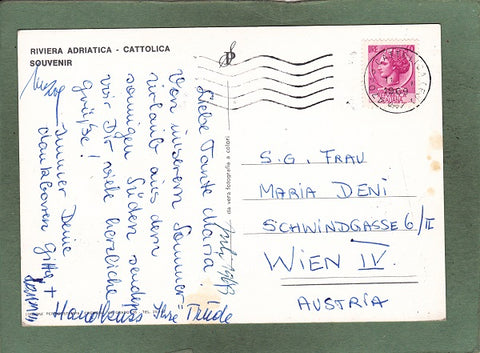 RIVIERA ADRIATICA - CATTOLICA
SOUVENIR
Liebe Tante Maria
Von unserem Sommer=
urlaub aus dem
sonnigen Süden senden
wir Dir viele herzliche
Grüße!
Immer Deine
dankbaren Gitta +
Handkuss Ihre Trude
da vera fotografia a colori
S.G. FRAU
MARIA DENI
SCHWINDGASSE 6/II
WIEN IV.
AUSTRIA